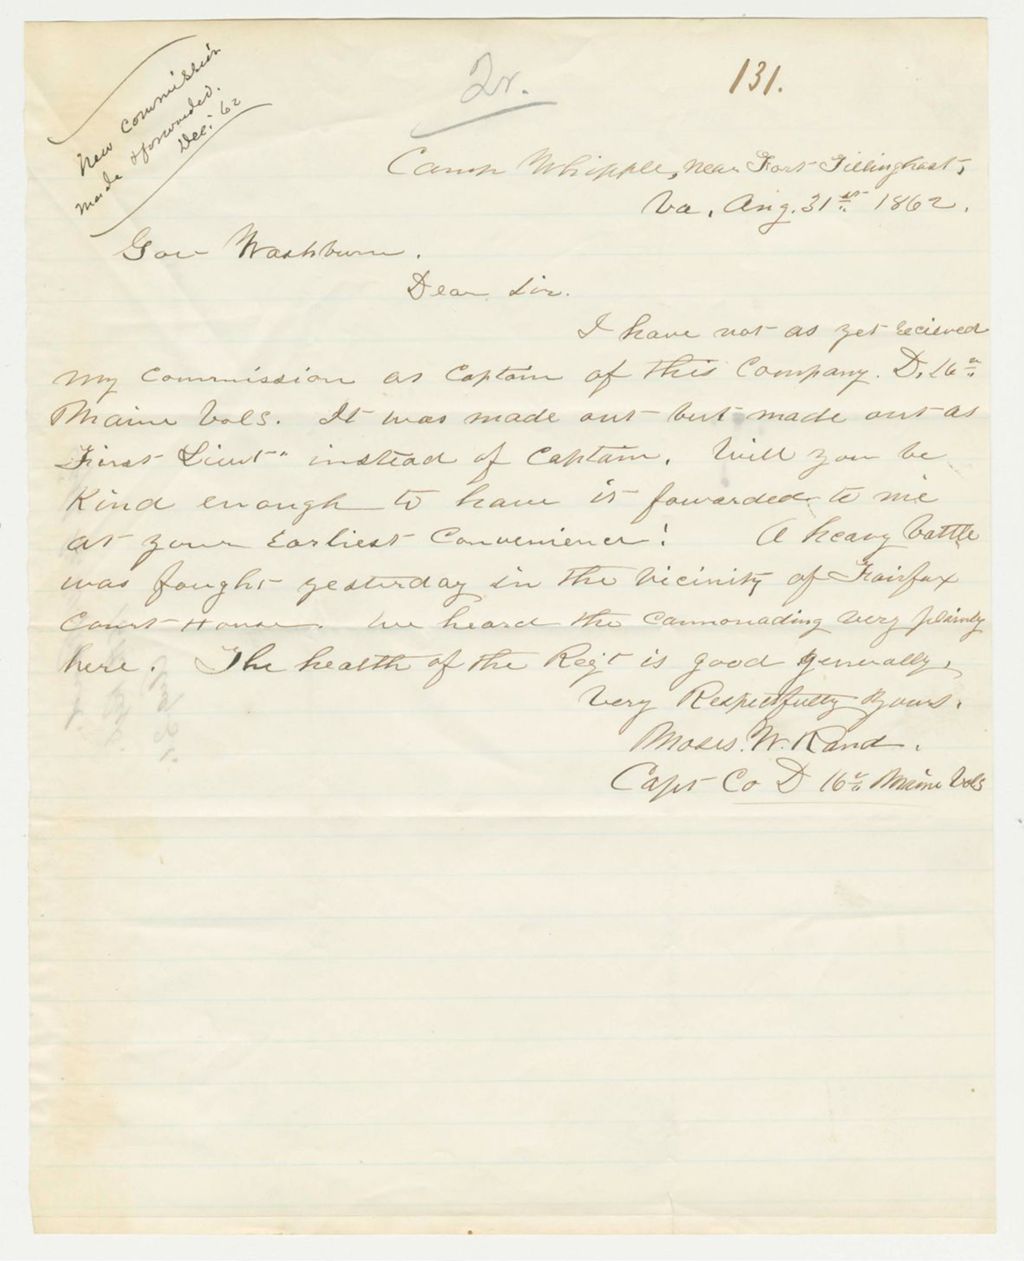 New Commission
made & forwarded.
Dec. 62
2r.
131.
Camp Whipple, near Fort Tillinghast,
Va, Aug. 31st 1862.
Gov Washburn.
Dear Sir.
I have not as yet recieved
my commission as Captain of this Company. D, 16th
Maine Vols. It was made out but made out as
First Lieut" instead of Captain. Will you be
Kind enough to have it fowarded to me
at your Earliest Convenience! A heavy battle
was fought yesterday in the vicinity of Fairfax
Court House. We heard the cannonading very plainly
here. The health of the Regt is good generally,
Very Respectfully Yours.
Moses. W. Rand.
Capt Co D 16th Maine Vols